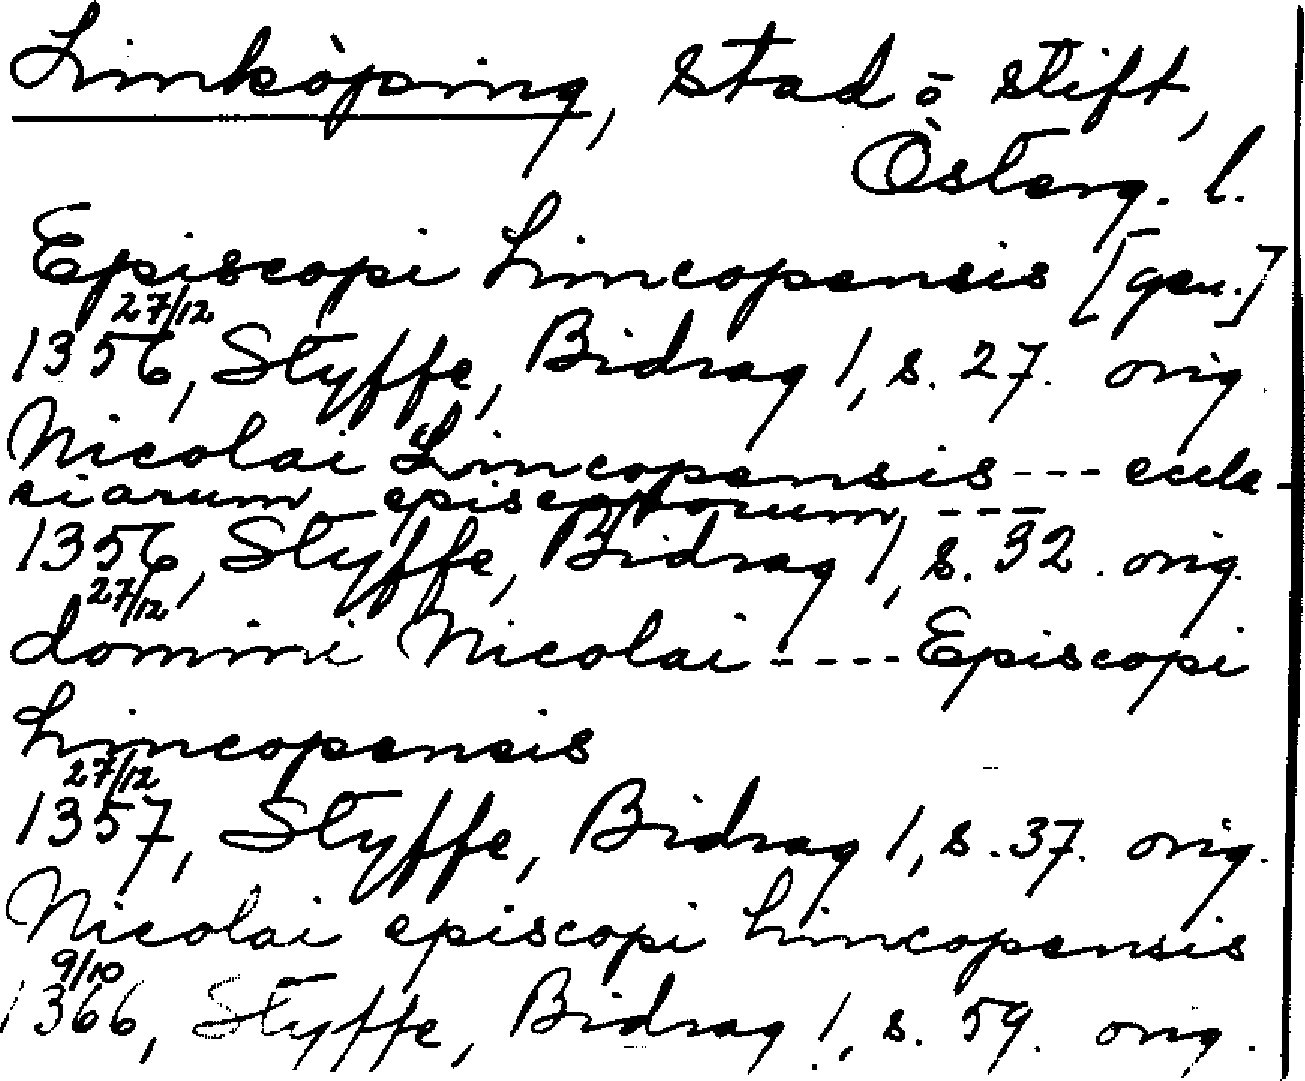 Linköping, stad o stift,
Österg. l.
Episcopi Lincopensis [gen.]
27/12
1356, Styffe, Bidrag 1, s. 27. orig.
Nicolai Lincopensis --- eccle-
siarum episcoporum, ---
1356, Styffe, Bidrag 1, s. 32. orig.
27/12
domini Nicolai ---- Episcopi
Lincopensis
27/12
1357, Styffe, Bidrag 1, s. 37. orig.
Nicolai episcopi Lincopensis
9/10
1366, Styffe, Bidrag 1, s. 59. orig.